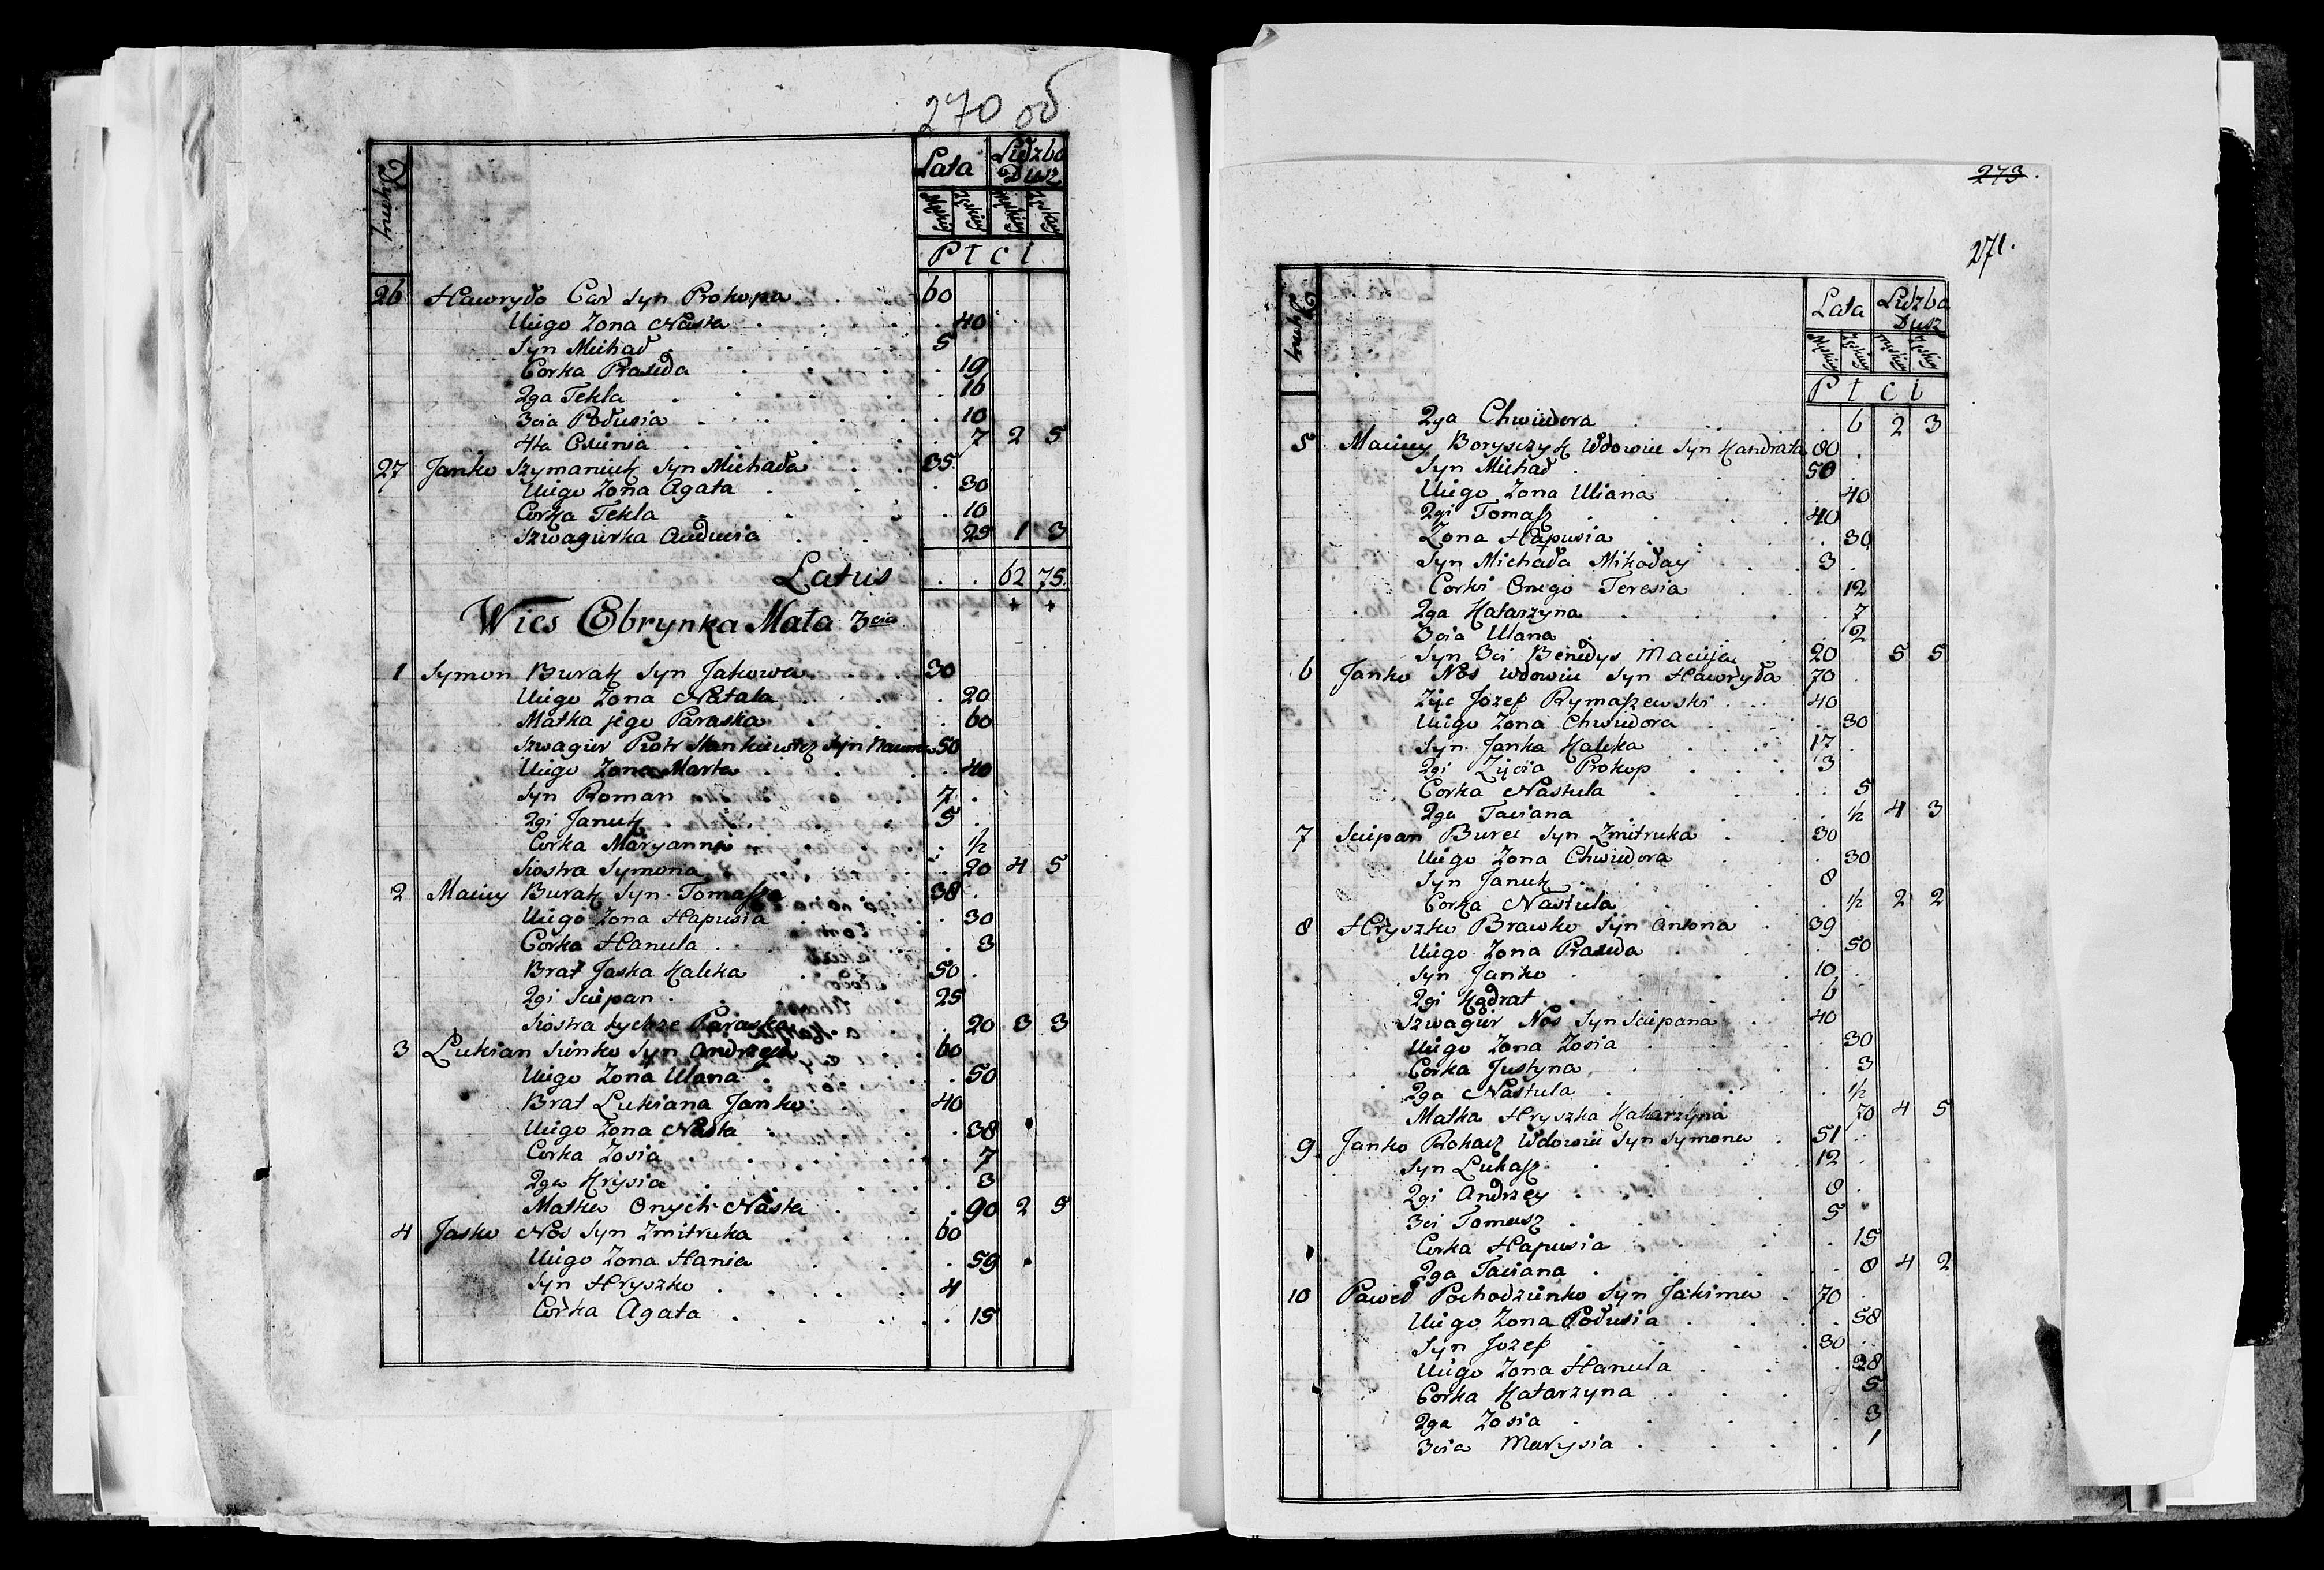 270 об
Dymy Lata Liczba Dusz
Męskie Żeńskie Męskie Żeńskie
P t c l
26 Hawryło Car Syn Prokopa 60
Uiego Zona Nasta 40
Syn Michał 5
Corka Praxeda 19
2ga Tekla 16
3cia Połusia 10
4ta Oxienia 7 2 5
27 Janko Szymaniuk Syn Michała 35
Uiego Zona Agata 30
Corka Tekla 10
Szwagierka Audocia 25 1 3
Latus 62 75
Wies Obrynka Mała 3cia
1 Symon Burak Syn Jakowa 30
Uiego Zona Natala 20
Matka jego Paraska 60
Szwagier Piotr Stankiewicz Syn Nauma 50
Uiego Zona Marta 40
Syn Roman 7
2gi Januk 5
Corka Maryanna 1/2
Siostra Symona 20 4 5
2 Maciey Burak Syn Tomasza 38
Uiego Zona Hapusia 30
Corka Hanula 3
Brat Jaska Kaleka 50
2gi Sciepan 25
Siostra tychze Paraska 20 3 3
3 Lukian Sienko Syn Andrzeja 60
Uiego Zona Ulana 50
Brat Lukiana Janko 40
Uiego Zona Nasta 38
Corka Zosia 7
2ga Krysia 3
Matka Onych Nasta 90 2 5
4 Jasko Nos Syn Zmitruka 60
Uiego Zona Hania 59
Syn Hryszko 4
Corka Agata 15
273.
271.
Dymy Lata Liczba Dusz
Męskie Żeńskie Męskie Żeńskie
P t c l
2ga Chwiedora 6 2 3
5 Maciey Borysczyk Wdowiec Syn Kandrata 80
Syn Michał 50
Uiego Zona Uliana 40
2gi Tomasz 40
Zona Hapusia 30
Syn Michała Mikołay 3
Corki Onego Teresia 12
2ga Katarzyna 7
3cia Ulana 2
Syn 3ci Benedys Macieja 20 5 5
6 Janko Nos Wdowiec Syn Hawryła 70
Zięc Jozef Rymaszewski 40
Uiego Zona Chwiedora 30
Syn Janka Kaleka 17
2gi Zięcia Prokop 3
Corka Nastula 5
2ga Taciana 1/2 4 3
7 Sciepan Burec Syn Zmitruka 30
Uiego Zona Chwiedora 30
Syn Januk 8
Corka Nastula 1/2 2 2
8 Hryszko Brawko Syn Antona 39
Uiego Zona Praxeda 50
Syn Janko 10
2gi Kądrat 6
Szwagier Nos Syn Sciepana 40
Uiego Zona Zosia 30
Corka Justyna 3
2ga Nastula 1/2
Matka Hryszka Katarzyna 70 4 5
9 Janko Rohacz Wdowiec Syn Symona 51
Syn Lukasz 12
2gi Andrzey 8
3ci Tomasz 5
Corka Hapusia 15
2ga Taciana 8 4 2
10 Paweł Pochodzienko Syn Jakima 70
Uiego Zona Połusia 58
Syn Jozef 30
Uiego Zona Hanula 28
Corka Katarzyna 5
2ga Zosia 3
3cia Marysia 1